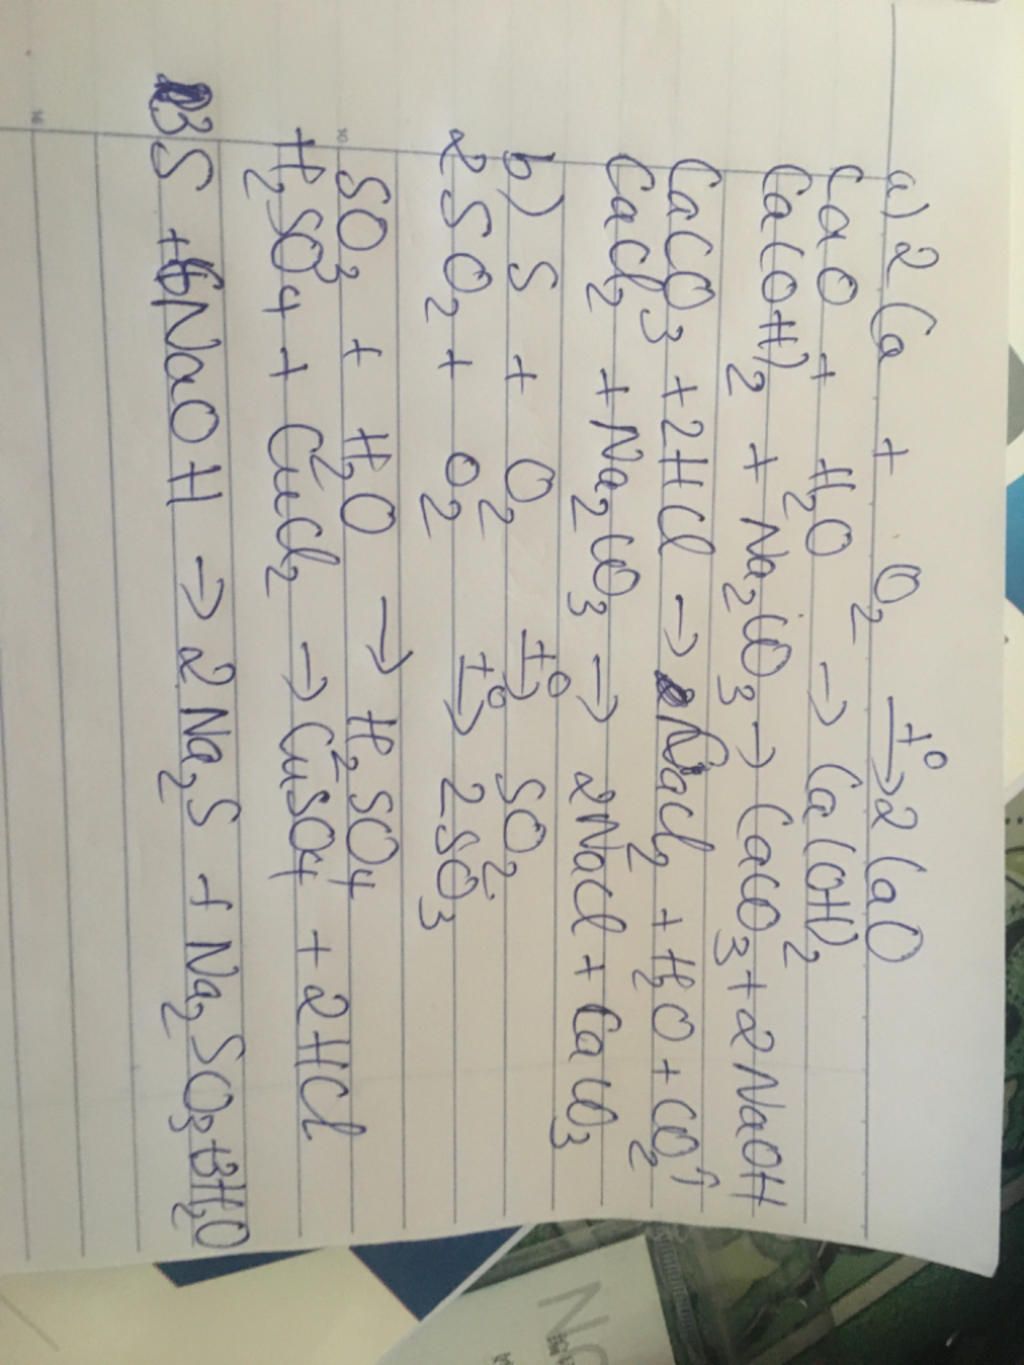 a) 2Ca + O₂ —t°→ 2CaO
CaO + H₂O → Ca(OH)₂
Ca(OH)₂ + Na₂CO₃ → CaCO₃ + 2NaOH
CaCO₃ + 2HCl → CaCl₂ + H₂O + CO₂↑
CaCl₂ + Na₂CO₃ → 2NaCl + CaCO₃
b) S + O₂ —t°→ SO₂
2SO₂ + O₂ —t°→ 2SO₃
SO₃ + H₂O → H₂SO₄
H₂SO₄ + CuCl₂ → CuSO₄ + 2HCl
3S + 6NaOH → 2Na₂S + Na₂SO₃ + 3H₂O